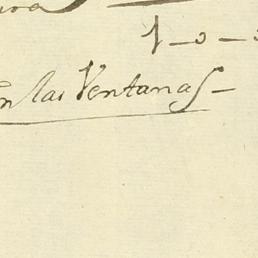 1_0_
En las Ventanas_